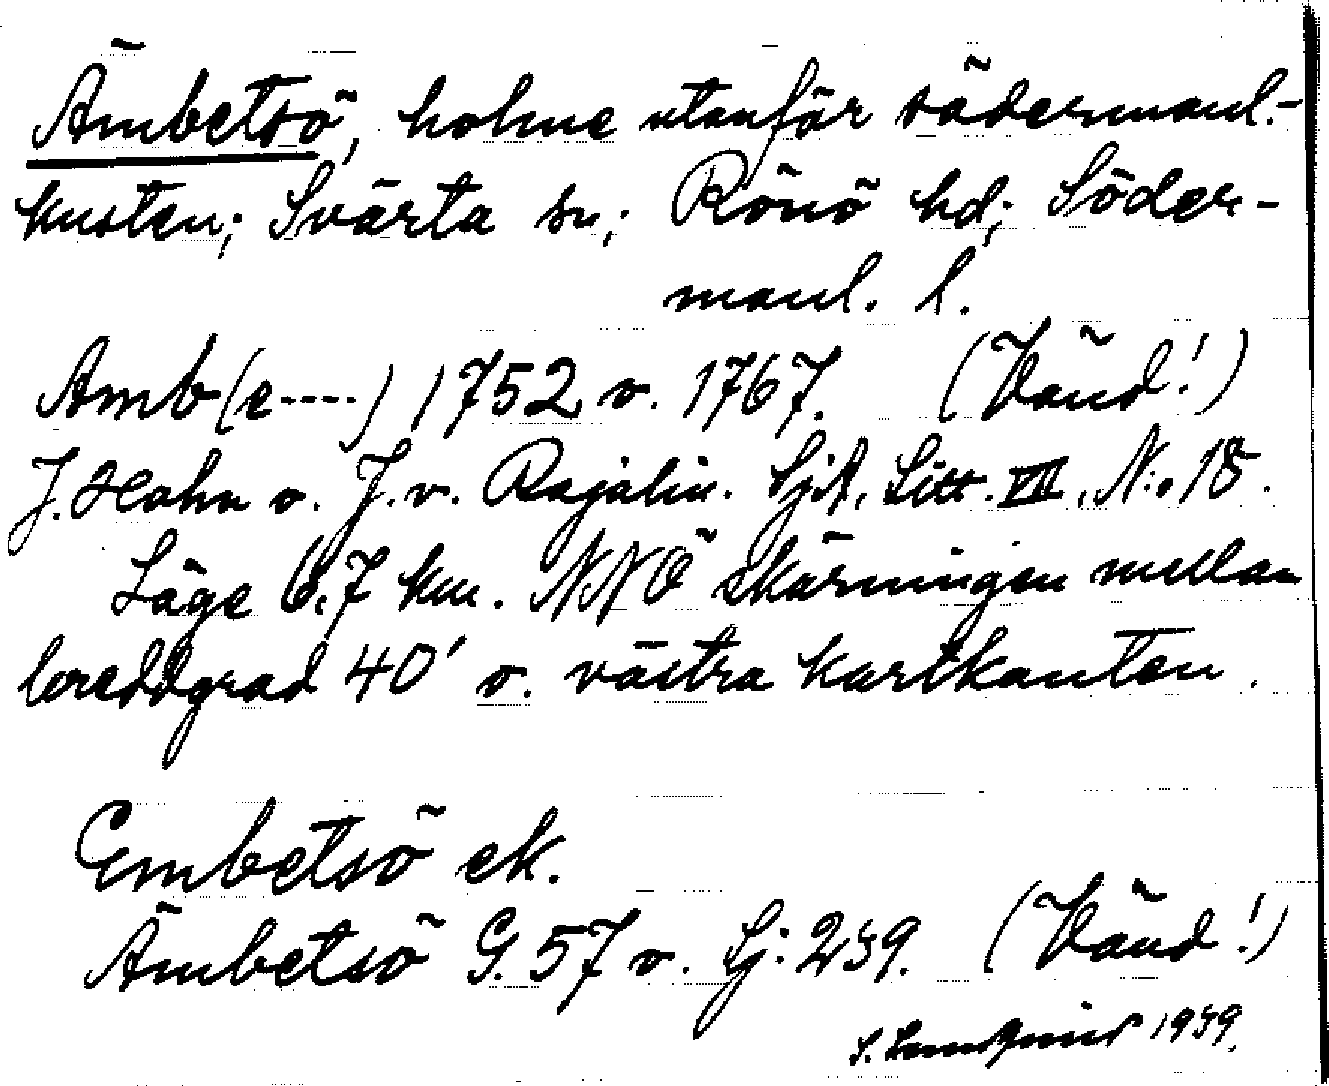 Ämbetsö, holme utanför södermanl.-
kusten; Svärta sn; Rönö hd; Söder-
manl. l.
Amb(e----) 1752 o. 1767. (Vänd!)
J. Hahn o. J. v. Rajalin. SjA, Litt. VII, N:o 18.
Läge 6.7 km. NNÖ skärningen mellan
breddgrad 40' o. västra kartkanten.
Embetsö ek.
Ämbetsö G. 57 o. Sj: 239. (Vänd!)
S. 1939.